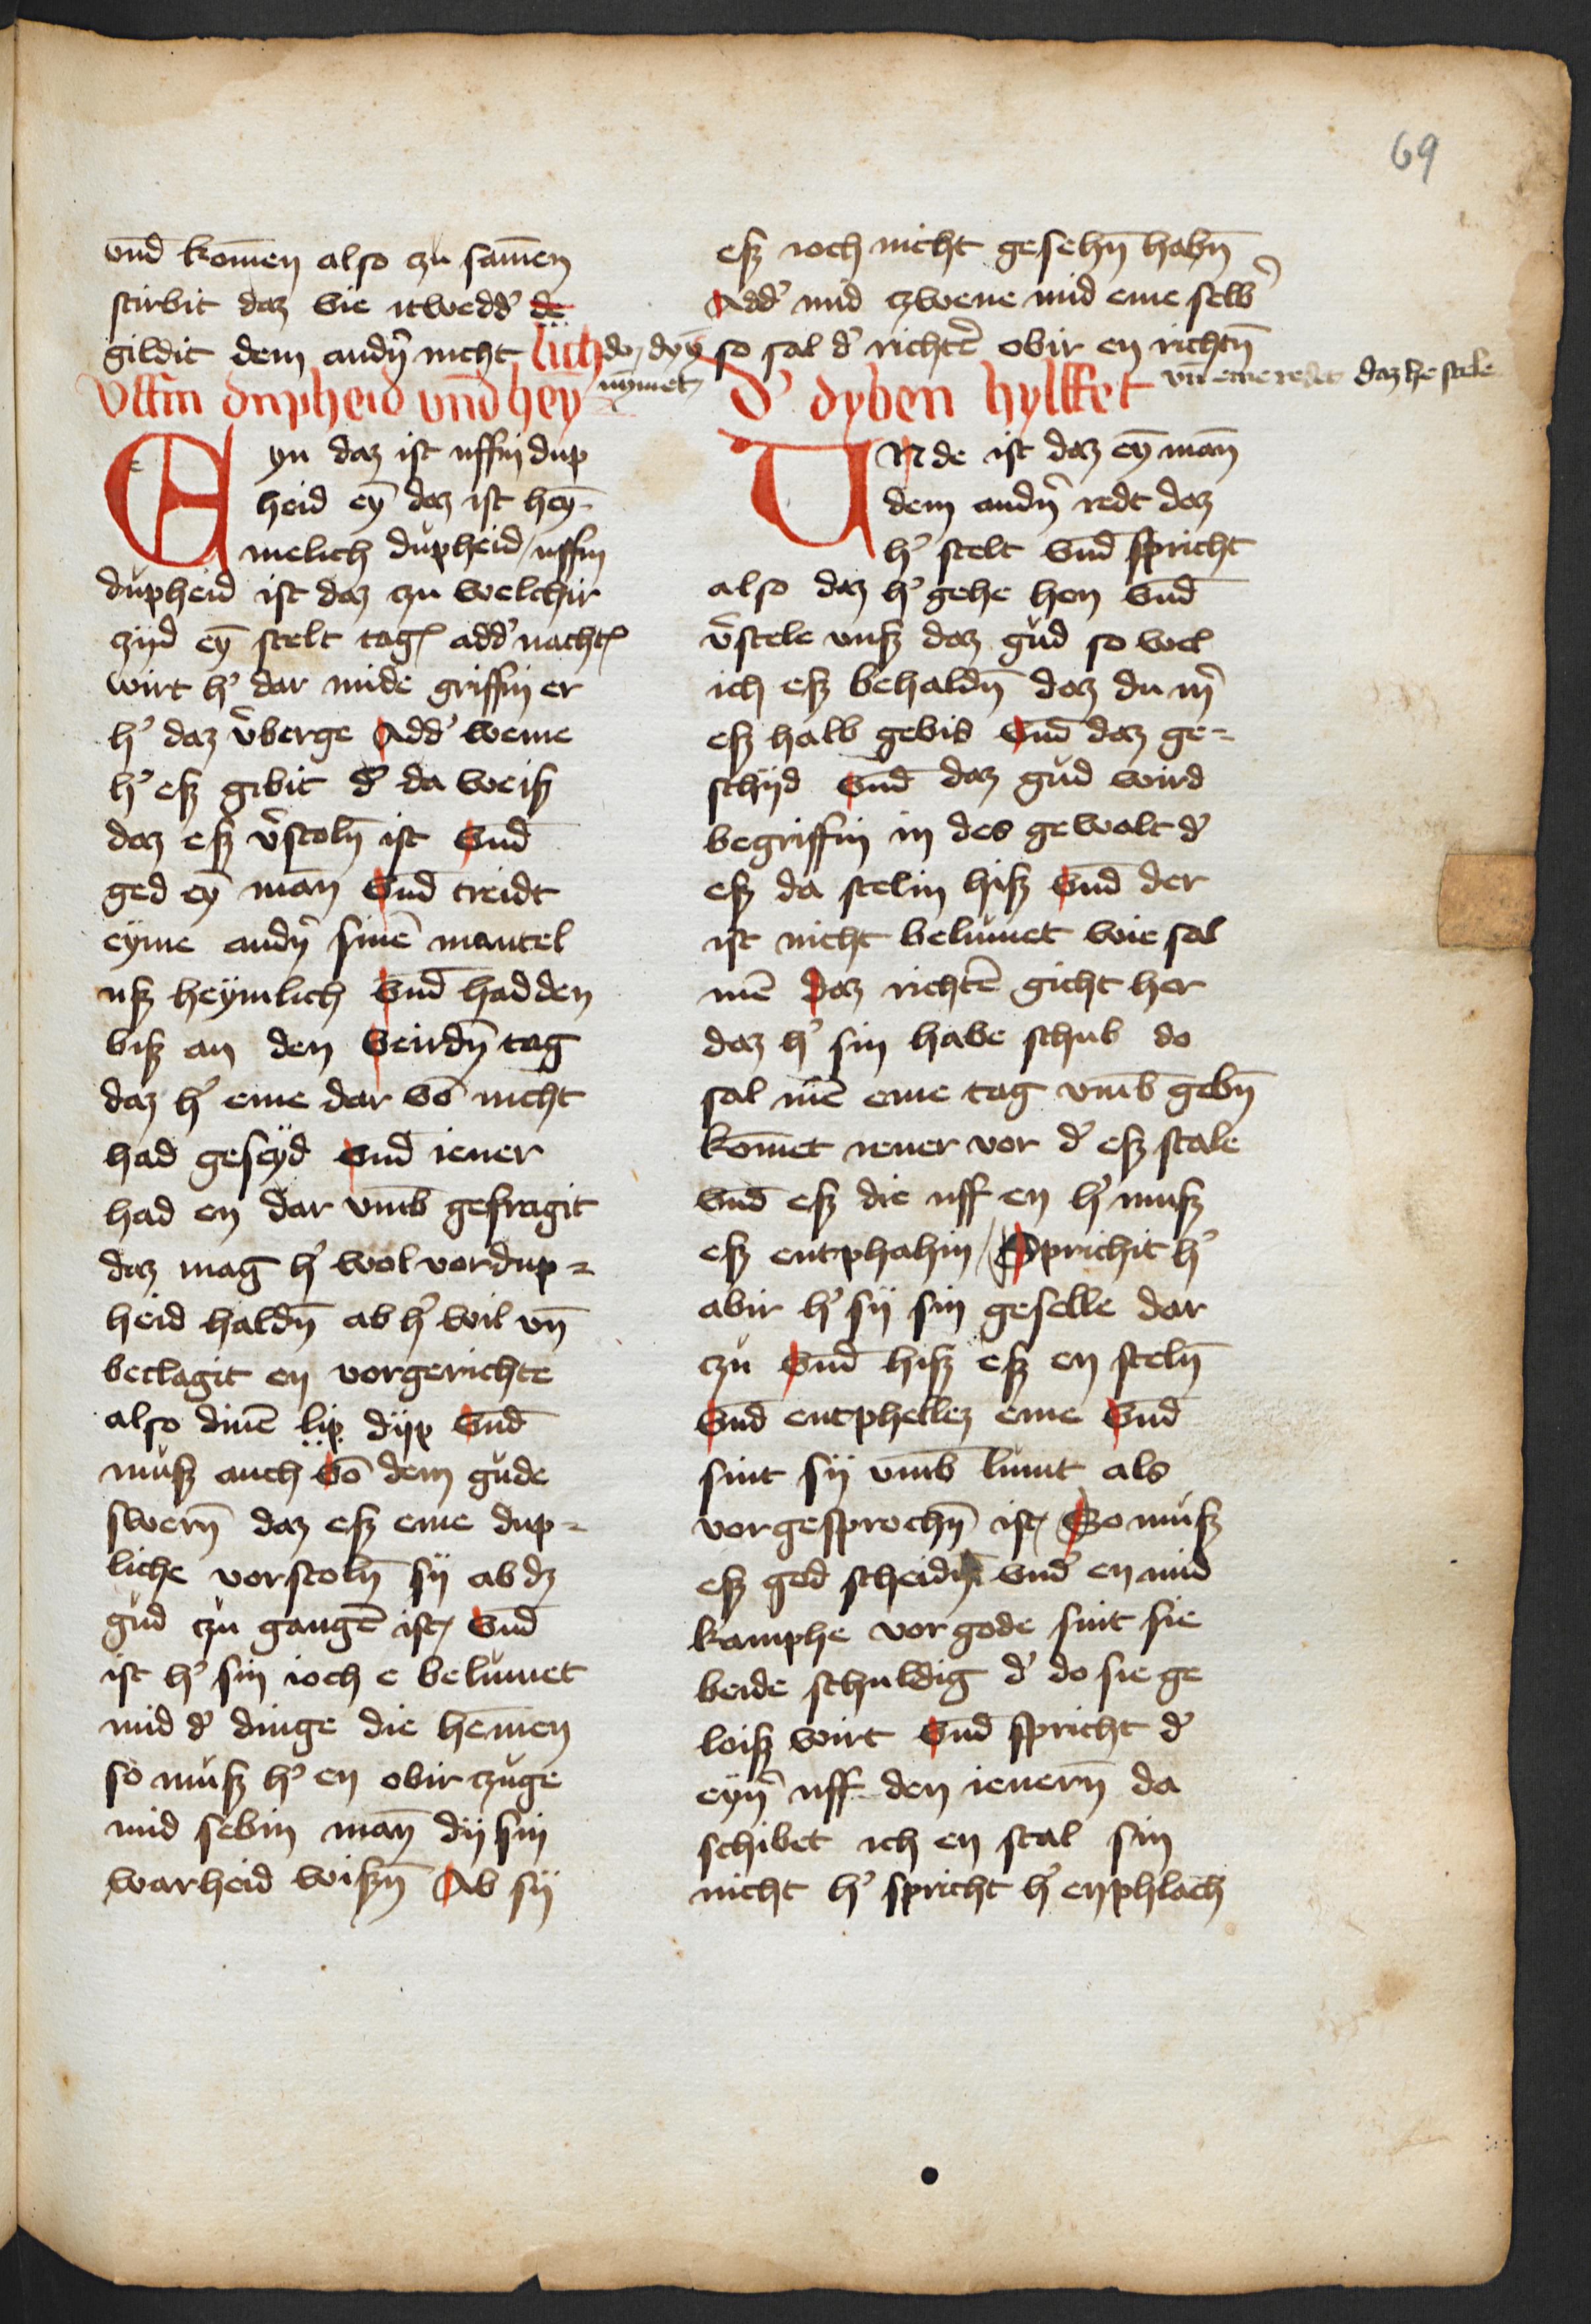 69
vnd̄ kom̄en also zu sam̄en
stirbit daz vie itwedd' de
gildit dem andn̄ nicht lich
do dyn
nymet
Uffin dupheid vnd hey
Eyn daz ist uffin dup
heid eȳ daz ist heȳ-
melich dupheid / uffin
dupheid ist daz zu welchir
zijd eȳ stelt tag add' nacht
wirt h' dar mide griffin er
h' daz v̄berge Add' weme
h' eß gibit d' da weiß
daz eß v̄stoln̄ ist vnd̄
ged eȳ man̄ vnd̄ treidt
eyme andn̄ sinē mantel
uß heymlich vnd̄ had den
biß an den veirdn̄ tag
daz h' eme dar vō nicht
had geseyd vnd̄ iener
had en dar vm̄b gefragit
daz mag h' wol vor dup=
heid haldn̄ ab h' wil vn̄
beclagit en vorgerichte
also dinē lip dijp vnd̄
muß auch vō dem gude
swern̄ daz eß eme dup=
liche vorstoln̄ sij ab dz
gud zu gangē ist / vnd̄
ist h' sin ioch e belumet
mid d' dinge die hemen
so muß h' en obir zuge
mid sebin man̄ dij sin
warheid wißn̄ Ab sij
eß ioch nicht gesehn̄ habn̄
Add' mid zwene mid eme selb'
so sal d' richtē obir en richtn̄
D' dyben hylffet
vn̄ eme redet daz he stele
UNde ist daz eȳ man̄
dem andn̄ redt daz
h' stelt vnd̄ spricht
also daz h' gehe hen vnd̄
v̄stele unß daz gud so wel
ich eß behaldn̄ daz du m̄
eß halb gebis vnd̄ daz ge=
schijd vnd̄ daz gud wird
begriffin in des gewalt d'
eß da stelin hiß vnd̄ der
ist nicht belumet wie sal
mē daz richtē gicht her
daz h' sin habe schub do
sal mē eme tag vm̄b gebn̄
kom̄et iener vor d' eß stale
vnd̄ eß die uff en h' muß
eß entphahin / Sprichit h'
abir h' sij sin geselle dar
zu vnd̄ hiß eß en steln̄
vnd̄ entphellez eme vnd̄
sint sij vm̄b lumt als
vor gesprochn̄ ist / So muß
eß god scheidin vnd̄ en mid
kamphe vor gode sint sie
beide schuldig d' do sie ge
loiß wirt vnd̄ spricht d'
eyn̄ uff den ienern̄ da
schibet ich en stal sin
nicht h' spricht h' enphlach